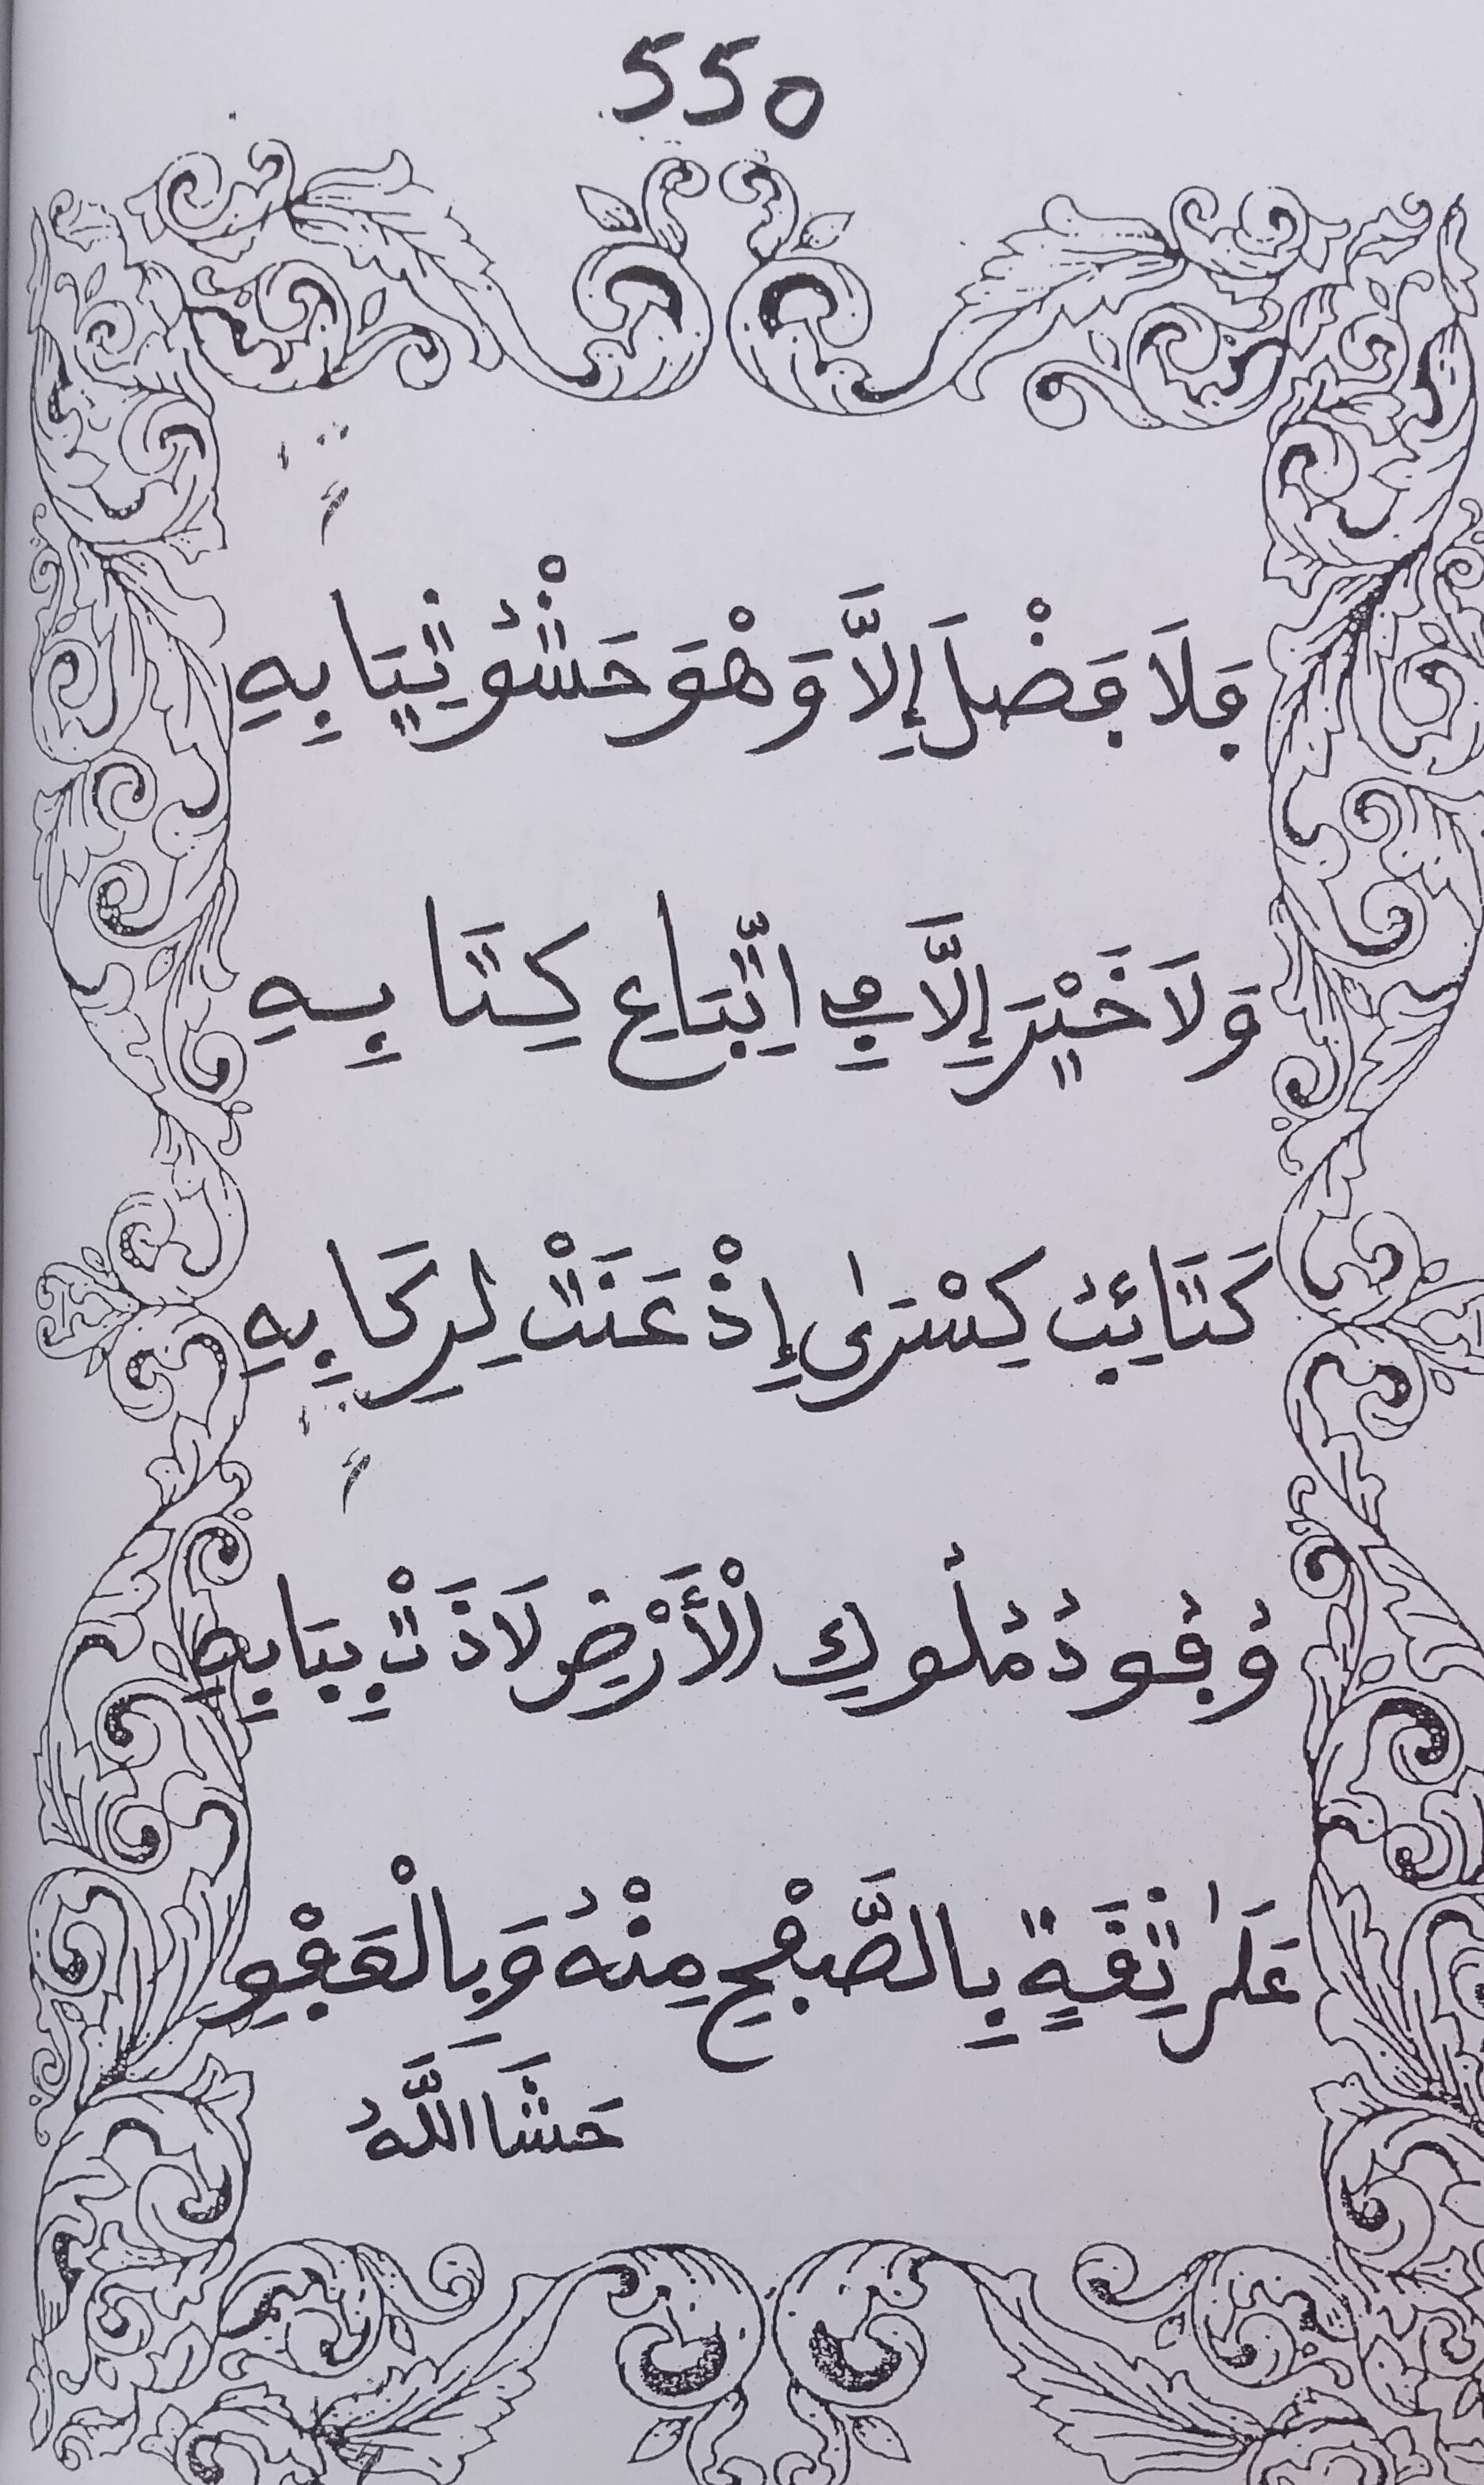 550
فَلَا فَضْلَ إِلَّا وَهْوَ حَشْوُ ثِيَابِهِ
وَلَا خَيْرَ إِلَّا فِي اتِّبَاعِ كِتَابِهِ
كَتَائِبُ كِسْرَىٰ إِذْ عَنَتْ لِرِكَابِهِ
وُفُودُ مُلُوكِ الْأَرْضِ لَاذَتْ بِبَابِهِ
عَلَىٰ ثِقَةٍ بِالصَّفْحِ مِنْهُ وَبِالْعَفْوِ
حَشَا اللَّهُ